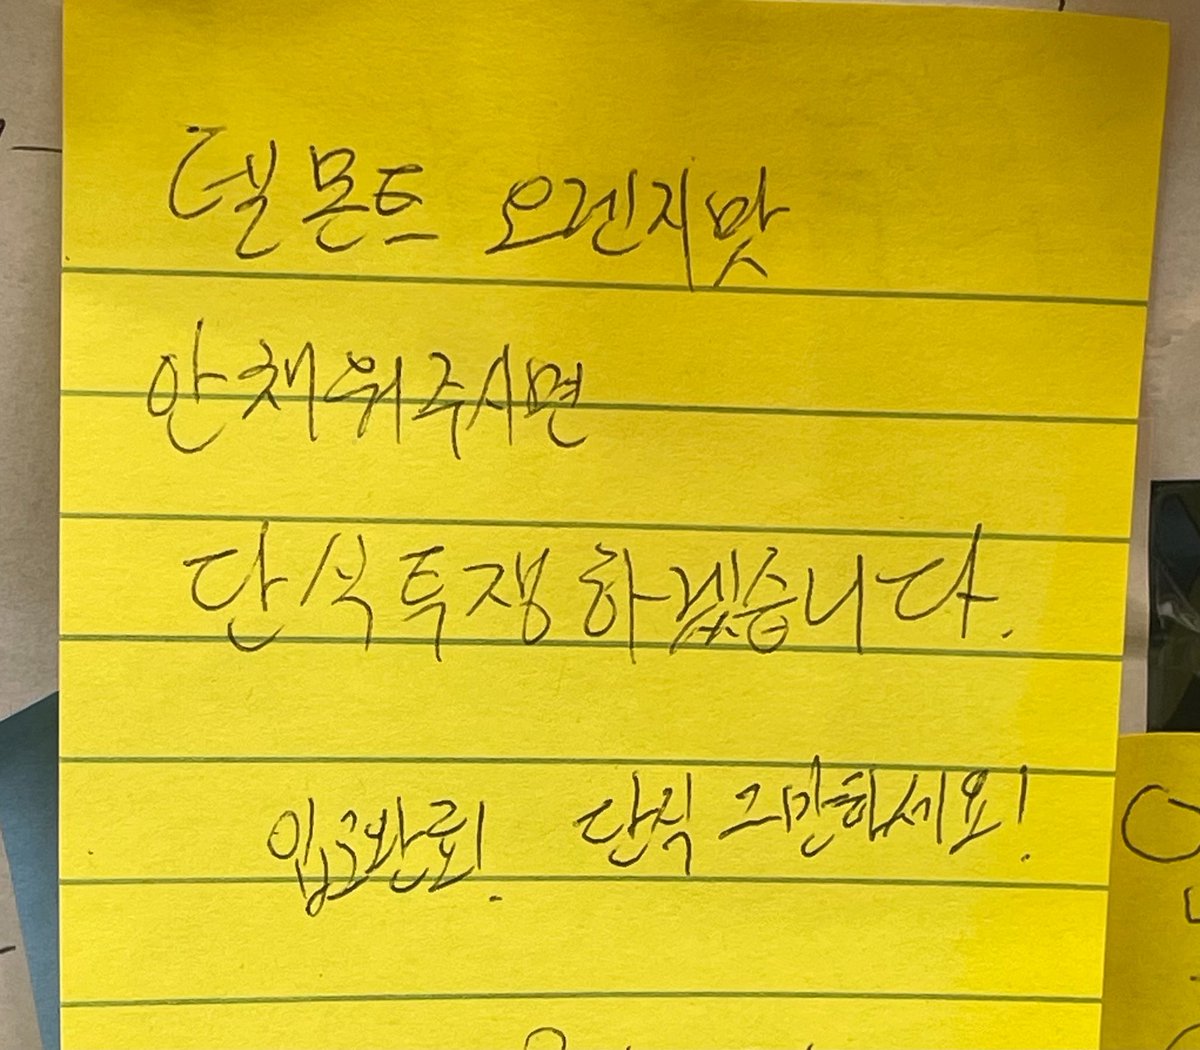 델몬트 오렌지맛
안채워주시면
단식투쟁하겠습니다.
입고완료. 단식 그만하세요!